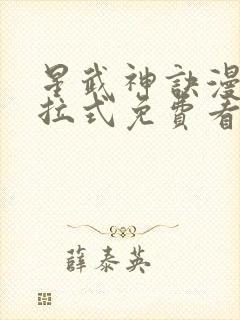 星武神訣漫
拉式免費看
薛泰英